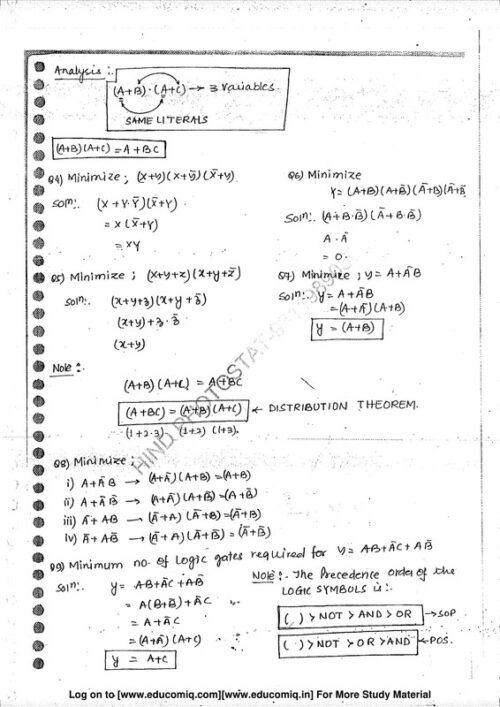 Analysis :-
(A+B)·(A+C) → 3 Variables.
SAME LITERALS
(A+B)(A+C) = A+BC
Q4) Minimize ; (x+y)(x+ȳ)(x̄+y)
Soln:. (x+y.ȳ)(x̄+y)
= x(x̄+y)
= xy
Q5) Minimize ; (x+y+z)(x+y+z̄)
Soln:. (x+y+z)(x+y+z̄)
(x+y)+z.z̄
(x+y)
Q6) Minimize
Y= (A+B)(A+B̄)(Ā+B)(Ā+B̄
Soln:. (A+B·B̄)(Ā+B·B̄)
A·Ā
= 0.
Q7) Minimize ; y= A+ĀB
Soln:. y= A+ĀB
=(A+Ā)(A+B)
y = (A+B)
Note :-
(A+B)(A+C) = A+BC
(A+BC) = (A+B)(A+C) ← DISTRIBUTION THEOREM.
(1+2·3) (1+2) (1+3).
Q8) Minimize ;
i) A+ĀB → (A+Ā)(A+B)=(A+B)
ii) A+ĀB̄ → (A+Ā)(A+B̄)=(A+B̄)
iii) Ā+AB → (Ā+A)(Ā+B)=(Ā+B)
iv) Ā+AB̄ → (Ā+A)(Ā+B̄)=(Ā+B̄)
Q9) Minimum no. of Logic gates required for y= AB+ĀC+AB̄
Soln:. y= AB+ĀC+AB̄
= A(B+B̄)+ĀC
= A+ĀC
= (A+Ā)(A+C)
y = A+C
Note :- The Precedence Order of the
LOGIC SYMBOLS is :-
( ) > NOT > AND > OR → SOP
( ) > NOT > OR > AND ← POS.
Log on to [www.educomiq.com][www.educomiq.in] For More Study Material